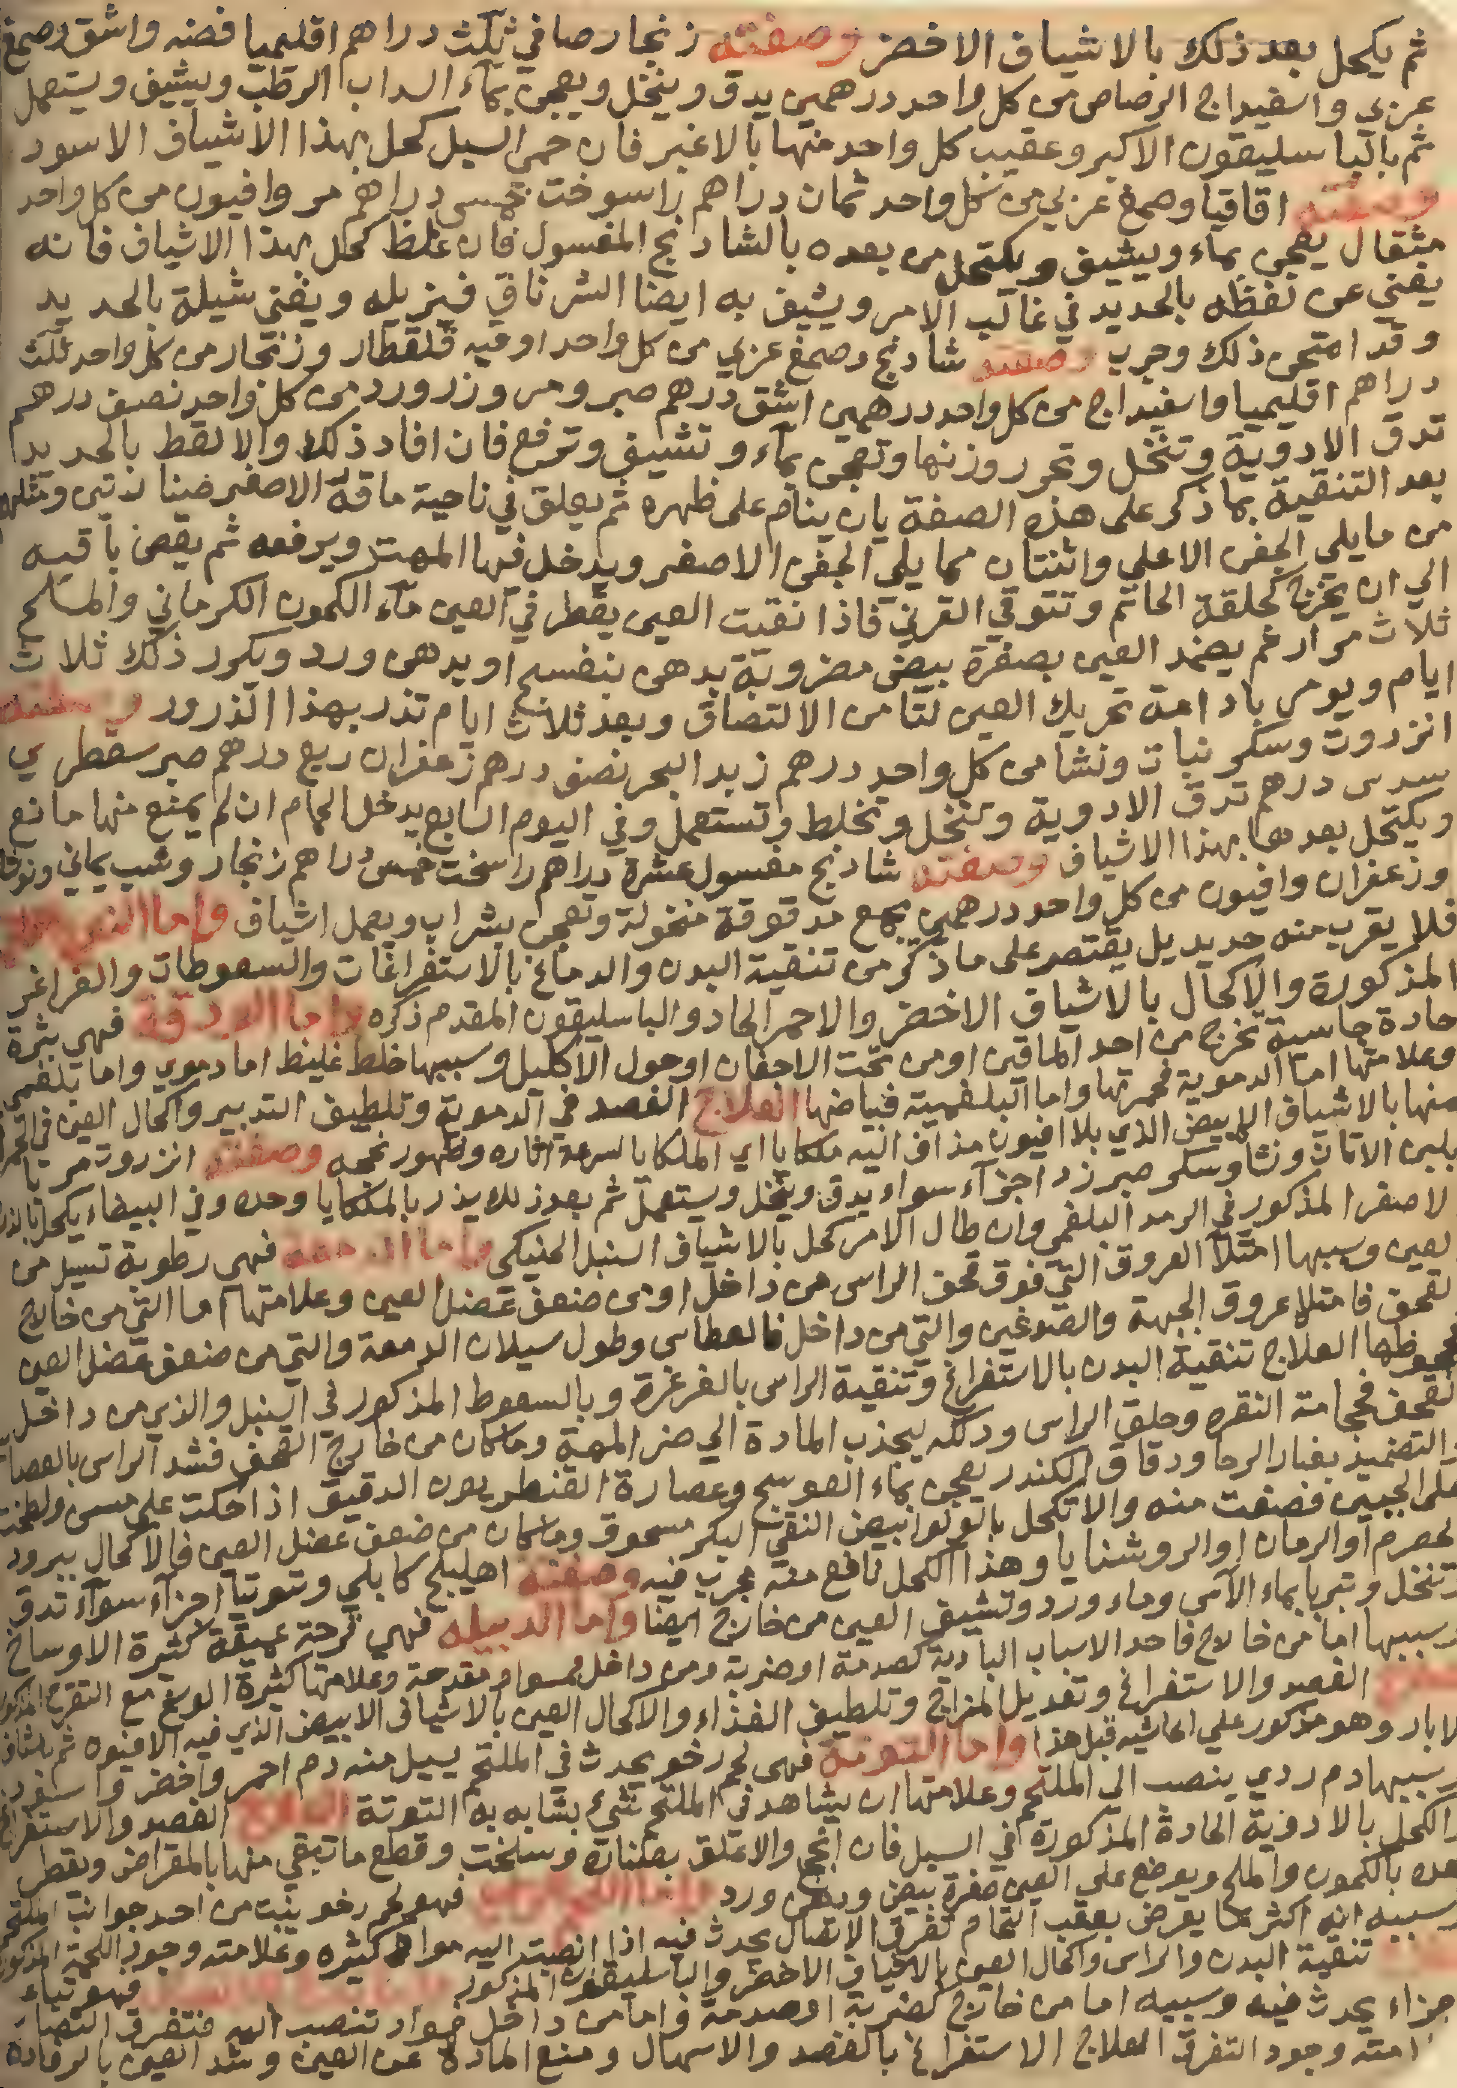 ثم يكحل بعد ذلك بالاشياف الاخضر وصفته زنجار صافي ثلث دراهم اقليميا فضه واشق وصمغ
عربي واسفيداج الرصاص من كل واحد درهمين يدق وينخل ويعجن بماء السداب الرطب ويشيف ويستعمل
ثم بالباسليقون الاكبر وعقيب كل واحد منها بالاغبر فان حمى السبل كحل بهذا الاشياف الاسود
وصفته اقاقيا وصمغ عربي من كل واحد ثمان دراهم راسوخت خمس دراهم مر وافيون من كل واحد
مثقال يعجن بماء ويشيف ويكتحل من بعده بالشادنج المغسول فان غلظ كحل بهذا الاشياف فانه
يغني عن لقطه بالحديد في غالب الامر ويشيف به ايضا الشرناق فيزيله ويغني شيلة بالحديد
وقد امتحن ذلك وجرب وصفته شادنج وصمغ عربي من كل واحد اوقيه قلقطار وزنجار من كل واحد ثلث
دراهم اقليميا واسفيداج من كل واحد درهمين اشق درهم صبر ومر وزرورد من كل واحد نصف درهم
تدق الادوية وتنخل وتحرر وزنها وتعجن بماء وتشيف وترفع فان افاد ذلك والا لقط بالحديد
بعد التنقية بما ذكر على هذه الصفة بان ينام على ظهره ثم يعلق في ناحية ماقه الاصغر صنارتين ومثلهم
من ما يلي الجفن الاعلى واثنتان مما يلي الجفن الاصغر ويدخل فيها المهت ويرفعه ثم يقص باقيه
الي ان يخرج كحلقة الخاتم وتتوقي القرني فاذا نقيت العين يقطر في العين ماء الكمون الكرماني والملح
ثلاث مرار ثم يضمد العين بصفرة بيض مضروبة بدهن بنفسج او بدهن ورد ويكرر ذلك ثلاث
ايام ويومر بادامة تحريك العين لتامن الالتصاق وبعد ثلاث ايام تذر بهذا الذرور وصفته
انزروت وسكر نبات ونشا من كل واحد درهم زبد البحر نصف درهم زعفران ربع درهم صبر سقطري
سدس درهم تدق الادوية وتنخل وتخلط وتستعمل وفي اليوم السابع يدخل الحمام ان لم يمنع منها مانع
ويكتحل بعدها بهذا الاشياف وصفته شادنج مغسول عشرة دراهم راسخت خمس دراهم زنجار وشب يماني
وزعفران وافيون من كل واحد درهمين يجمع مدقوقة منخولة وتعجن بشراب ويعمل اشياف واما
فلا يقرب منه حديد بل يقتصر على ما ذكر من تنقية البدن والدماغ بالاستفراغات والسعوطات والغراغر
المذكورة والاكحال بالاشياف الاخضر والاحمر الحاد والباسليقون المقدم ذكره واما الودقة فهي بثرة
حادة جاسية تخرج من احد الماقين او من تحت الاجفان او حول الاكليل وسببها خلط غليظ اما دموي واما بلغمي
وعلامتها اما الدموية فحمرتها واما البلغمية فبياضها العلاج الفصد في الدموية وتلطيف التدبير واكحال العين في
منها بالاشياف الابيض الذي بلا افيون مذاف اليه ملكايا اي الملكايا لسرعة اثاره وظهور نجحه وصفته انزروت مربا
بلبن الاتان ونشا وسكر صبرزد اجزاء سواء يدق وينخل ويستعمل ثم بعد ذلك يذر بالملكايا وحده وفي البيضاء يكحل
لاصفر المذكور في الرمد البلغمي وان طال الامر كحل بالاشياف السنبل واما الدمعة فهي رطوبة تسيل من
لعين وسببها امتلا العروق التي فوق قحف الراس من داخل او من ضعف عضل العين وعلامتها اما التي من خارج
لقحف فامتلا عروق الجبهة والصدغين والتي من داخل فالعطاس وطول سيلان الدمعة والتي من ضعف عضل العين
العلاج تنقية البدن بالاستفراغ وتنقية الراس بالغرغرة وبالسعوط المذكور في السبل والذي من داخل
لقحف فحجامة النقرة وحلق الراس ودلكه ليجذب المادة الي ضرر المهة وما كان من خارج القحف فشد الراس بالعصا
والتضميد بغبار الرحا ودقاق الكندر يعجن بماء العوسج وعصارة القنطريون الدقيق اذا حكت علي مسن ولطخت
على الجبين فضعت منه والاتكحل بالولو ابيض النقي البكر مسحوق وما كان من ضعف عضل العين فالاكحال ببرود
لحصرم او الرمان او الروشنايا وهذا الكحل نافع منه مجرب فيه وصفته اهليلج كابلي وتوتيا اجزاء سواء تدق
وتنخل وتربا بماء الآس وماء ورد وتشيف العين من خارج ايضا واما الدبيله فهي قرحة عميقة كثيرة الاوساخ
وسببها اما من خارج فاحد الاسباب البادية كصدمة او ضربة ومن داخل وعلامتها كثيرة الوسخ مع التقرح
الفصد والاستفراغ وتعديل المزاج وتلطيف الغذاء والاكحال العين بالاشياف الابيض الذي فيه الافيون ثم
لابار وهو مذكور علي الحاشيه قبل هذا واما التوتة فهي لحم رخو يحدث في الملتحم يسيل منه دم احمر واخضر واسود
وسببها دم ردي ينصب الى الملتحم وعلامتها ان يشاهد في الملتحم شيء يشابه به التوتة العلاج الفصد والاستفراغ
والكحل بالادوية الحادة المذكورة في السبل فان انجح والا علق بصنارة وسلخت وقطع ما تبقي منها بالمقراض ويقطر
بعده بالكمون والملح ويوضع علي العين صفرة بيض ودهن ورد واما اللحم الزايد فهو لحم رخو ينبت من احد جوانب الملتحم
وسببه انه اكثر ما يعرض بعقب التحام تفرق الاتصال يحدث فيه اذا انصبت اليه مواد كثيره وعلامته وجود اللحمة المذكورة
تنقية البدن والراس واكحال العين بالاشياف الاخضر والباسليقون المذكور
اجزاء يحدث فيه وسببه اما من خارج كضربة او صدمة واما من داخل فمواد تنصب اليه فتفرق اتصا
امته وجود التفرق العلاج الاستفراغ بالفصد والاسهال ومنع المادة عن العين وشد العين بالرفادة